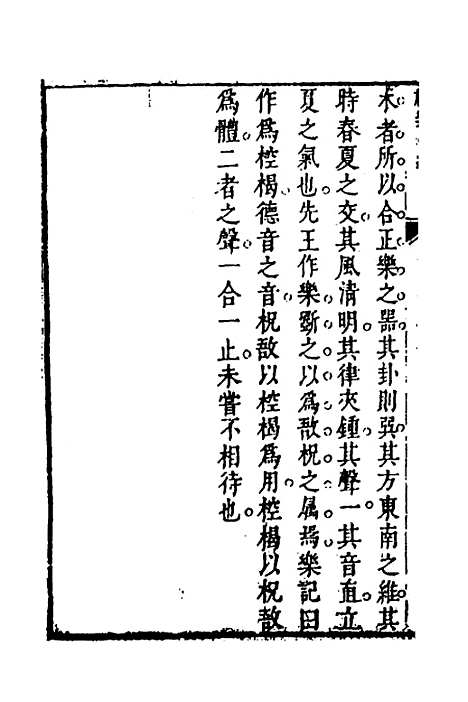 木者所以合正樂之器其卦則巽其方東南之維其
時春夏之交其風清明其律夾鍾其聲一其音直立
夏之氣也先王作樂斵之以為敔柷之属焉樂記曰
作為椌楬德音之音柷敔以椌楬為用椌楬以柷敔
為體二者之聲一合一止未嘗不相待也